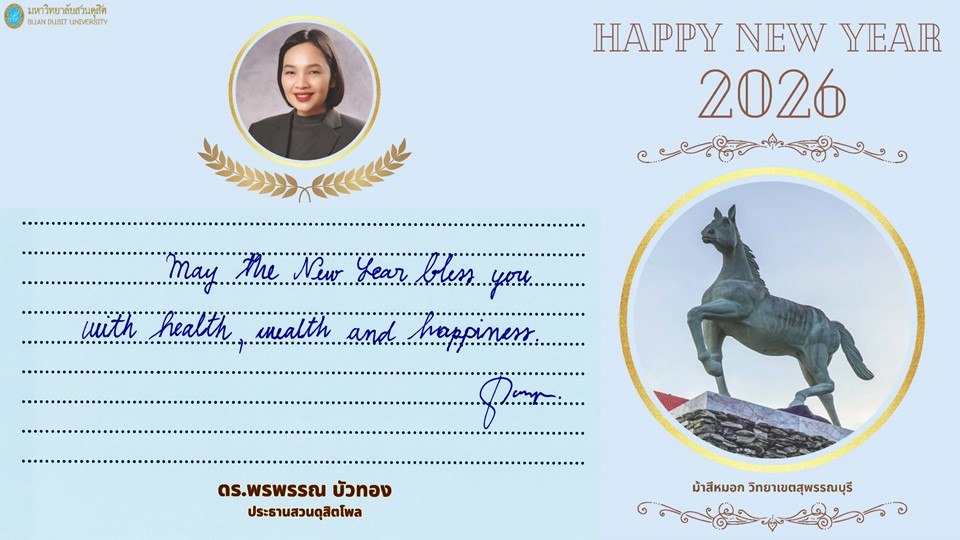 มหาวิทยาลัยสวนดุสิต
SUAN DUSIT UNIVERSITY
HAPPY NEW YEAR
2026
May the New Year bless you
with health, wealth and happiness.
ดร.พรพรรณ บัวทอง
ประธานสวนดุสิตโพล
ม้าสีหมอก วิทยาเขตสุพรรณบุรี